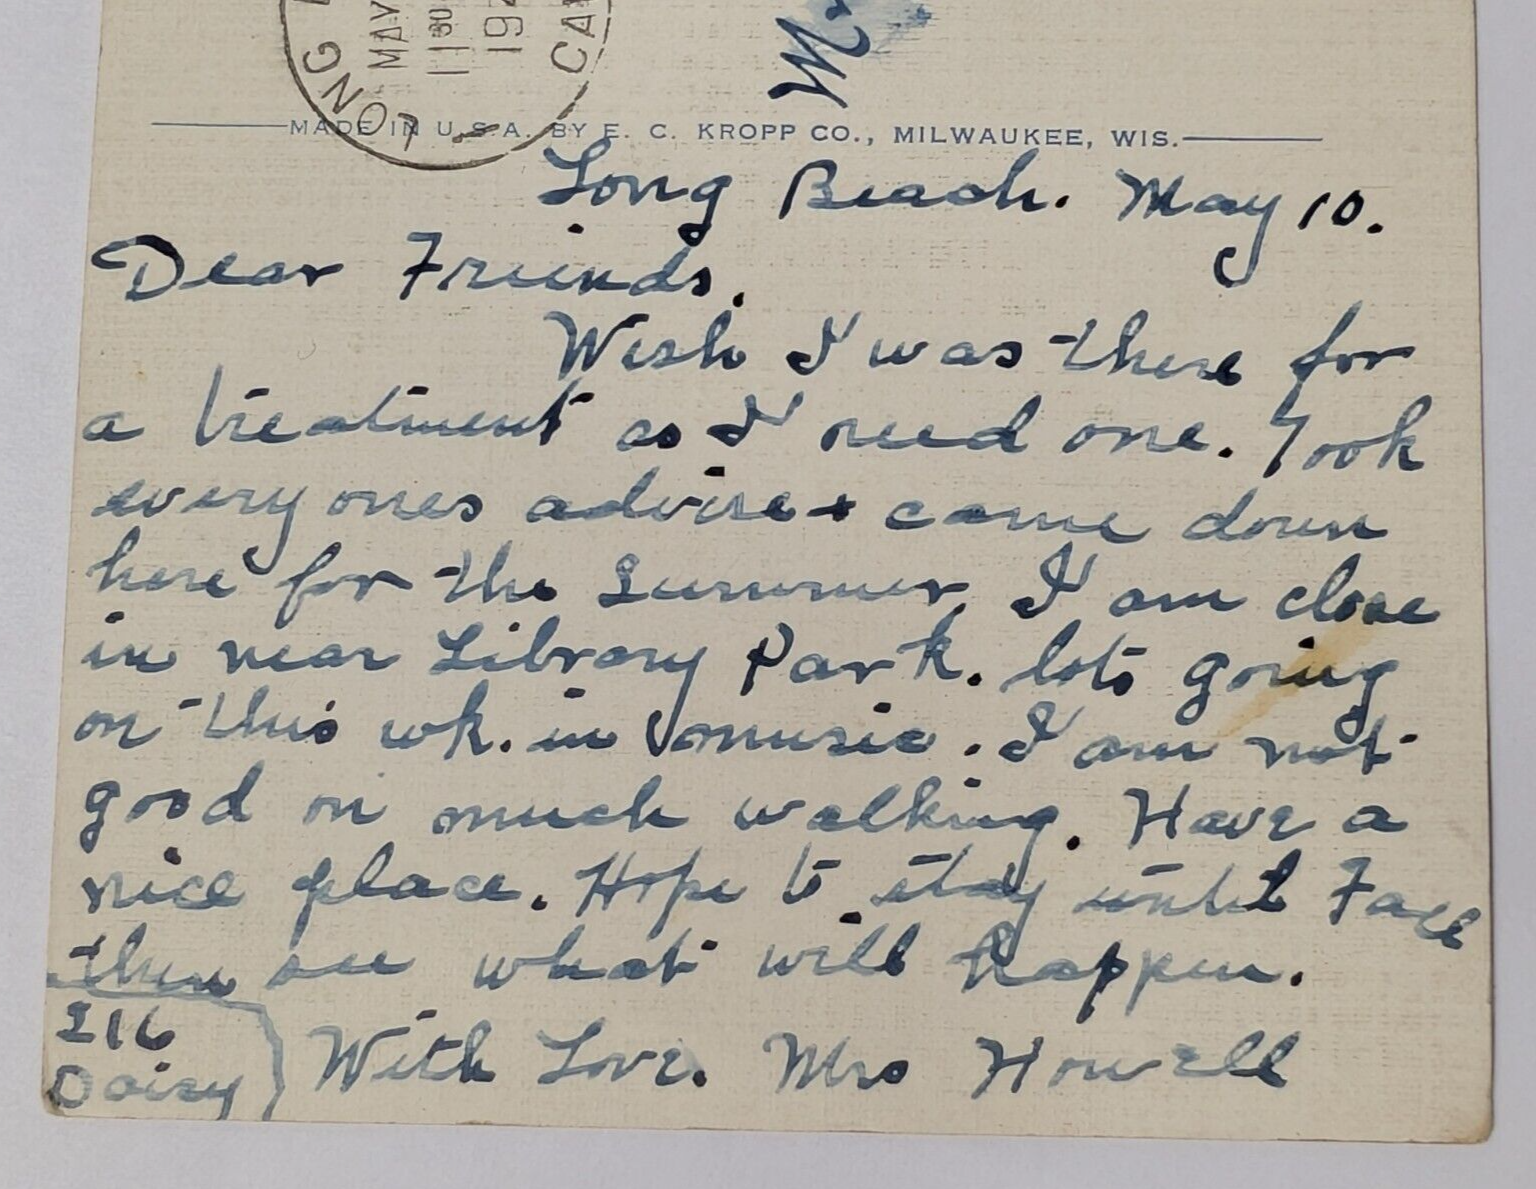 LONG
MAY
11 30
CAL
M
MADE IN U.S.A. BY E. C. KROPP CO., MILWAUKEE, WIS.
Long Beach. May 10.
Dear Friends.
Wish I was there for
a treatment as I need one. Took
everyones advise + came down
here for the Summer. I am close
in near Library Park. lots going
on this wk. in music. I am not
good on much walking. Have a
nice place. Hope to stay until Fall
then see what will happen.
216
Daisy
With Love. Mrs Howell